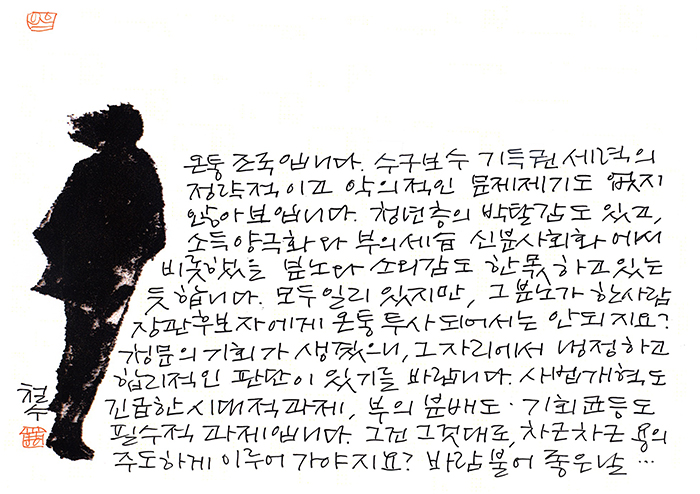 온통 조국입니다. 수구보수 기득권 세력의
정략적이고 악의적인 문제제기도 없지
않아 보입니다. 청년층의 박탈감도 있고,
소득양극화다 부의세습 신분사회화에서
비롯했을 분노다 소외감도 한몫하고있는
듯합니다. 모두일리 있지만, 그 분노가 한사람
장관후보자에게 온통 투사되어서는 안되지요?
청문의 기회가 생겼으니, 그자리에서 냉정하고
합리적인 판단이 있기를 바랍니다. 사법개혁도
긴급한 시대적과제, 부의 분배도·기회균등도
필수적 과제입니다. 그건 그것대로, 차근차근 용의
주도하게 이루어 가야지요? 바람불어 좋은날…
철수